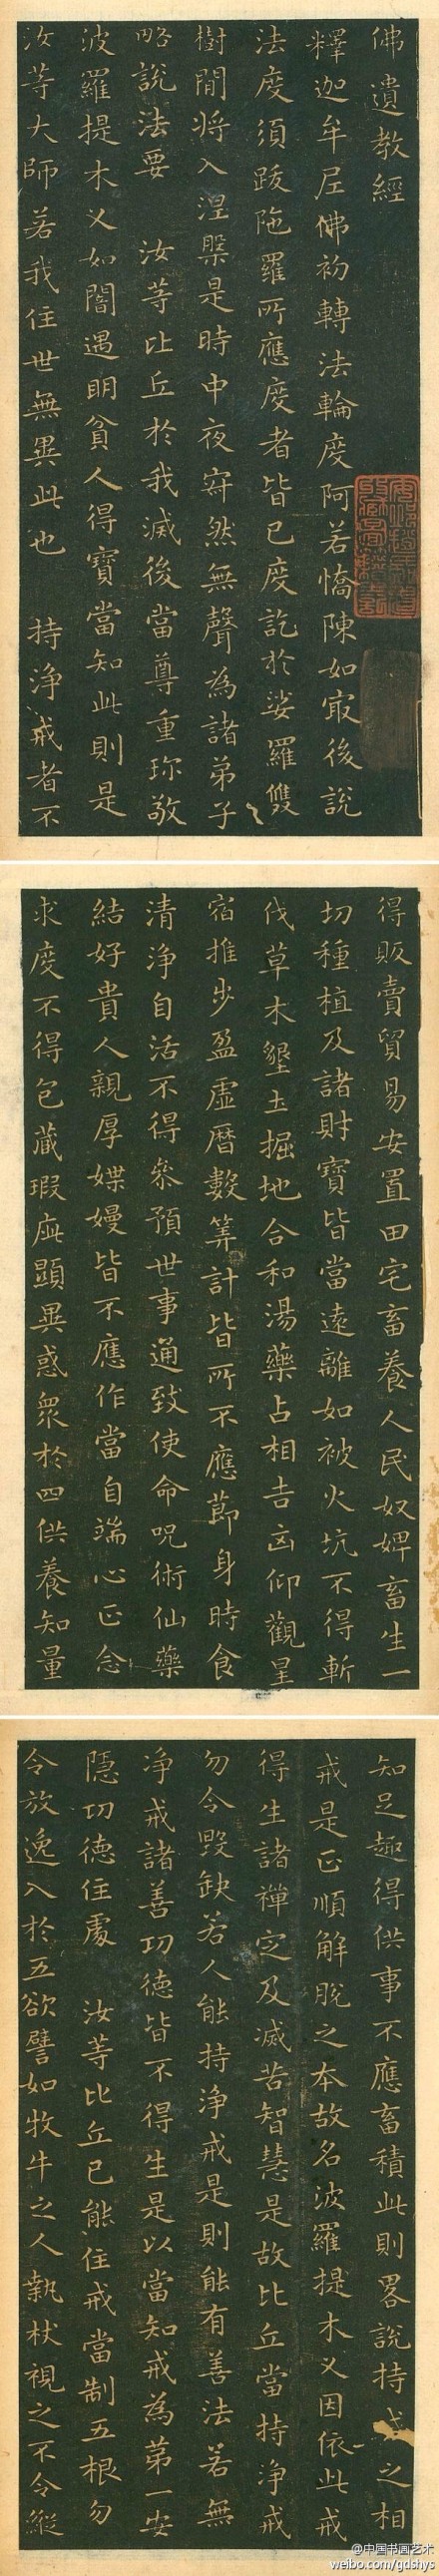 佛遺教經
釋迦牟尼佛初轉法輪度阿若憍陳如冣後說
法度須跋陁羅所應度者皆已度訖於娑羅雙
樹間將入涅槃是時中夜寂然無聲為諸弟子
略說法要 汝等比丘於我滅後當尊重珎敬
波羅提木叉如闇遇明貧人得寶當知此則是
汝等大師若我住世無異此也 持淨戒者不
得販賣貿易安置田宅畜養人民奴婢畜生一
切種植及諸財寶皆當遠離如被火坑不得斬
伐草木墾土掘地合和湯藥占相吉凶仰觀星
宿推步盈虛曆數筭計皆所不應節身時食
清淨自活不得參預世事通致使命呪術仙藥
結好貴人親厚媟嫚皆不應作當自端心正念
求度不得包藏瑕疵顯異惑衆於四供養知量
知足趣得供事不應畜積此則畧說持戒之相
戒是正順解脫之本故名波羅提木叉因依此戒
得生諸禪定及滅苦智慧是故比丘當持淨戒
勿令毀缺若人能持淨戒是則能有善法若無
淨戒諸善功德皆不得生是以當知戒為第一安
隱功德住處 汝等比丘已能住戒當制五根勿
令放逸入於五欲譬如牧牛之人執杖視之不令縱
@中国书画艺术
weibo.com/gdshys